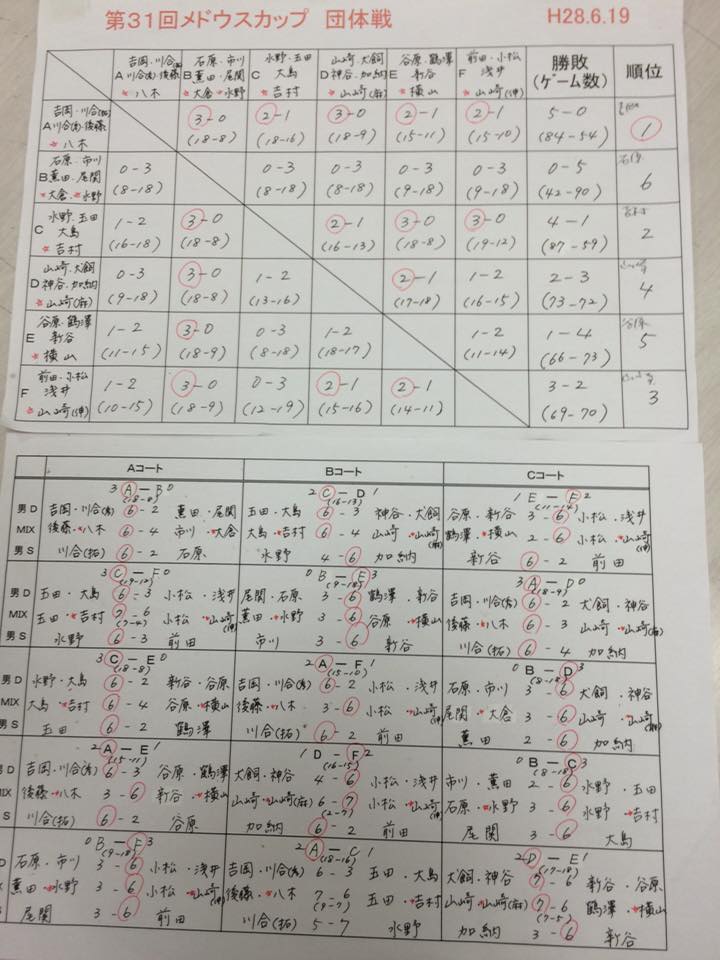 第31回メドウスカップ 団体戦 H28.6.19
吉岡・川合(拓) A川合(有)・後藤 *八木
石原・市川 B薫田・尾関 *大倉・*水野
水野・五田 C 大鳥 *吉村
山崎・犬飼 D神谷・加納 *山崎(麻)
谷原・鶴澤 E 新谷 *横山
前田・小松 F 浅井 *山崎(伸)
勝敗 (ゲーム数)
順位
吉岡・川合(拓) 3-0 2-1 3-0 2-1 2-1 5-0
A川合(有)・後藤 *八木 (18-8) (18-16) (18-9) (15-11) (15-10) (84-54) 1
石原・市川 0-3 0-3 0-3 0-3 0-3 0-5 石原
B薫田・尾関 *大倉・*水野 (8-18) (8-18) (8-18) (9-18) (9-18) (42-90) 6
水野・五田 1-2 3-0 2-1 3-0 3-0 4-1
C 大鳥 *吉村 (16-18) (18-8) (16-13) (18-8) (19-12) (87-59) 2
山崎・犬飼 0-3 3-0 1-2 2-1 1-2 2-3
D神谷・加納 *山崎(麻) (9-18) (18-8) (13-16) (17-18) (16-15) (73-72) 4
谷原・鶴澤 1-2 3-0 0-3 1-2 1-2 1-4 谷原
E 新谷 *横山 (11-15) (18-9) (8-18) (18-17) (11-14) (66-73) 5
前田・小松 1-2 3-0 0-3 2-1 2-1 3-2
F 浅井 *山崎(伸) (10-15) (18-9) (12-19) (15-16) (14-11) (69-70) 3
Aコート Bコート Cコート
3 A-B 0 (18-8) 2 C-D 1 (16-13) 1 E-F 2 (11-14)
男D 吉岡・川合(有) 6-2 薫田・尾関 五田・大鳥 6-3 神谷・犬飼 谷原・新谷 3-6 小松・浅井
MIX 後藤・*八木 6-4 市川・*大倉 大鳥・*吉村 6-4 山崎・*山崎(麻) 鶴澤・*横山 2-6 小松・*山崎(伸)
男S 川合(拓) 6-2 石原 水野 4-6 加納 新谷 6-2 前田
3 C-F 0 (9-12) 0 B-E 3 (9-18) 3 A-D 0 (18-9)
男D 五田・大鳥 6-3 小松・浅井 尾関・石原 3-6 鶴澤・新谷 吉岡・川合(有) 6-2 犬飼・神谷
MIX 五田・*吉村 7-6 (7-4) 小松・*山崎(伸) 薫田・*水野 3-6 谷原・*横山 後藤・*八木 6-3 山崎・*山崎(麻)
男S 水野 6-3 前田 市川 3-6 新谷 川合(拓) 6-4 加納
3 C-E 0 (18-8) 2 A-F 1 (15-10) 0 B-D 3 (8-18)
男D 水野・大鳥 6-2 新谷・谷原 吉岡・川合(有) 6-2 小松・浅井 石原・市川 3-6 犬飼・神谷
MIX 大鳥・*吉村 6-4 谷原・*横山 後藤・*八木 3-6 小松・*山崎(伸) 尾関・*大倉 3-6 山崎・*山崎(麻)
男S 五田 6-2 鶴澤 川合(拓) 6-2 前田 薫田 2-6 加納
2 A-E 1 (15-11) 1 D-F 2 (16-15) 0 B-C 3 (8-18)
男D 吉岡・川合(有) 6-3 谷原・鶴澤 犬飼・神谷 4-6 小松・浅井 市川・薫田 2-6 水野・五田
MIX 後藤・*八木 3-6 新谷・*横山 山崎・*山崎(麻) 6-7 (2-7) 小松・*山崎(伸) 石原・*水野 3-6 水野・*吉村
男S 川合(拓) 6-2 谷原 加納 6-2 前田 尾関 3-6 大鳥
0 B-F 3 (9-18) 2 A-C 1 (18-16) 2 D-E 1 (17-18)
男D 石原・市川 3-6 小松・浅井 吉岡・川合(有) 6-3 五田・大鳥 犬飼・神谷 7-6 新谷・谷原
MIX 薫田・*水野 3-6 小松・*山崎(伸) 後藤・*八木 7-6 (9-7) 五田・*吉村 山崎・山崎(麻) 7-6 (7-5) 鶴澤・*横山
S 尾関 3-6 前田 川合(拓) 5-7 水野 加納 3-6 新谷